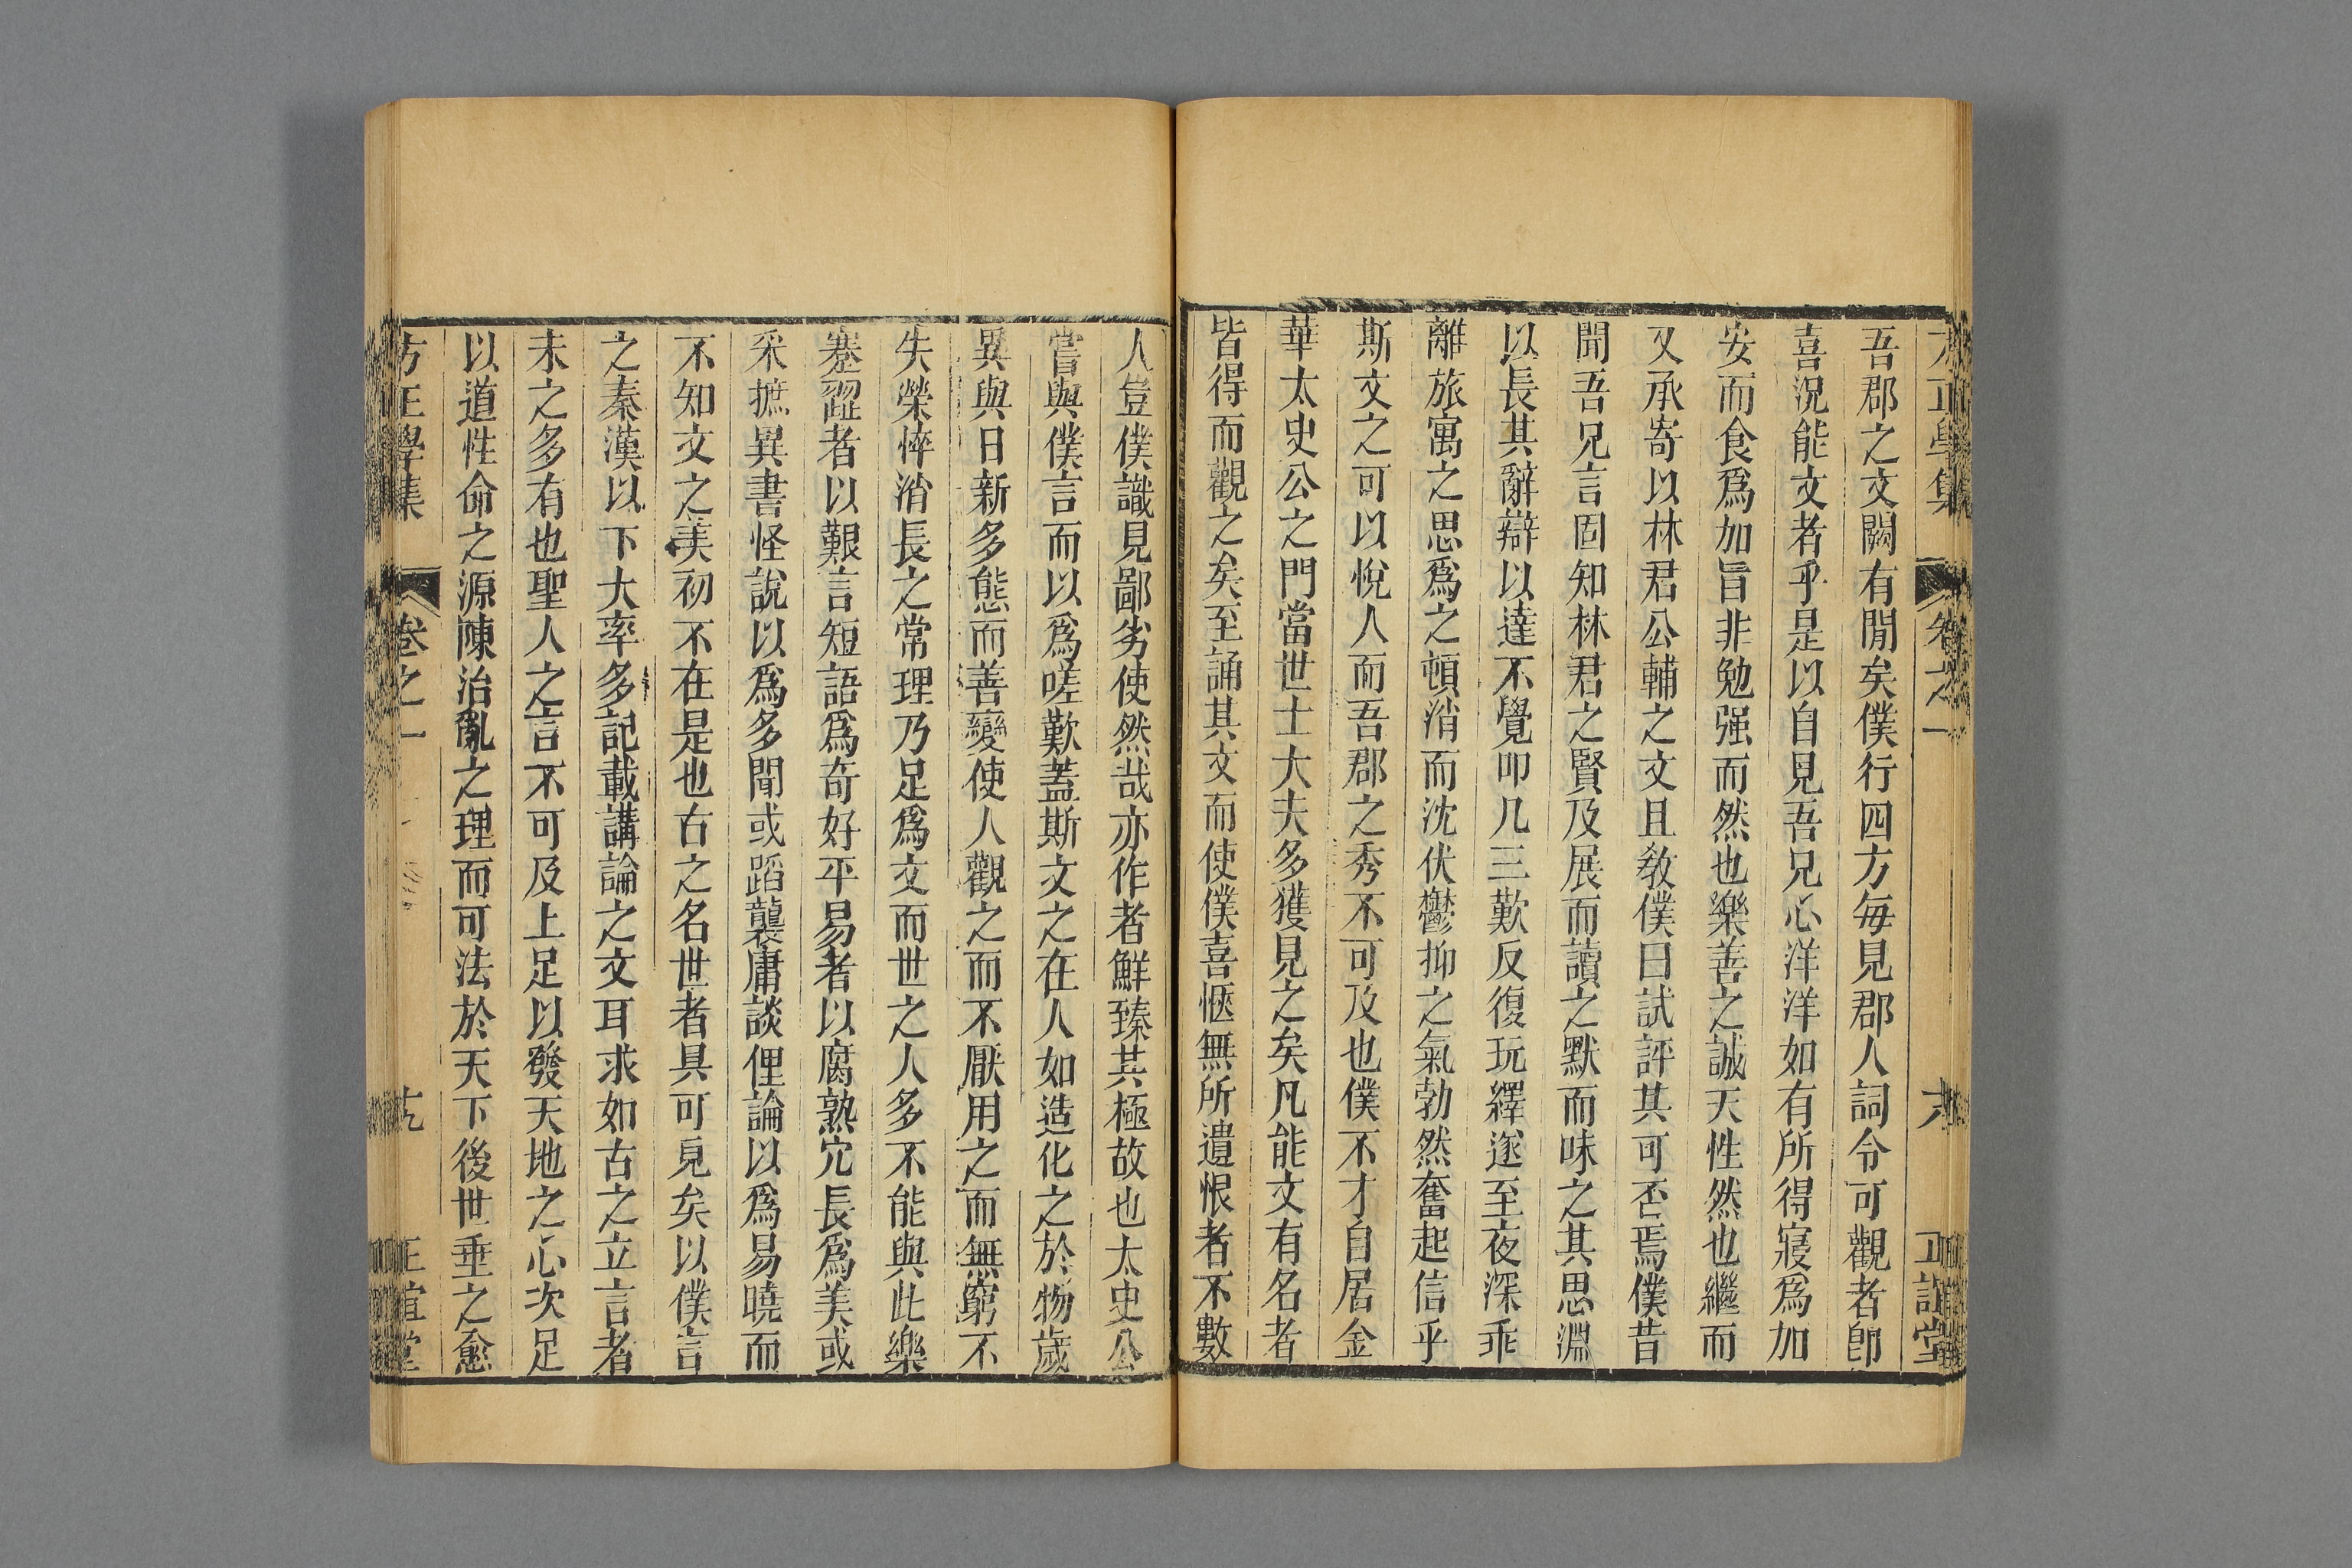 正學集 卷之一 六 正誼堂
吾郡之文闕有聞矣僕行四方每見郡人詞令可觀者卽
喜況能文者乎是以自見吾兄心洋洋如有所得寢爲加
安而食爲加旨非勉强而然也樂善之誠天性然也繼而
又承寄以林君公輔之文且敎僕曰試評其可否焉僕昔
聞吾兄言固知林君之賢及展而讀之默而味之其思淵
以長其辭辯以達不覺叩几三歎反復玩繹遂至夜深乖
離旅寓之思爲之頓消而沈伏鬱抑之氣勃然奮起信乎
斯文之可以悅人而吾郡之秀不可及也僕不才自居金
華太史公之門當世士大夫多獲見之矣凡能文有名者
皆得而觀之矣至誦其文而使僕喜愜無所遺恨者不數
人豈僕識見鄙劣使然哉亦作者鮮臻其極故也太史公
嘗與僕言而以爲嗟歎蓋斯文之在人如造化之於物歲
異與日新多態而善變使人觀之而不厭用之而無窮不
失榮悴消長之常理乃足爲文而世之人多不能與此樂
蹇澀者以艱言短語爲奇好平易者以腐熟冗長爲美或
采摭異書怪說以爲多聞或蹈襲庸談俚論以爲易曉而
不知文之美初不在是也古之名世者具可見矣以僕言
之秦漢以下大率多記載講論之文耳求如古之立言者
未之多有也聖人之言不可及上足以發天地之心次足
以道性命之源陳治亂之理而可法於天下後世垂之愈
方正學集 卷之一 正誼堂